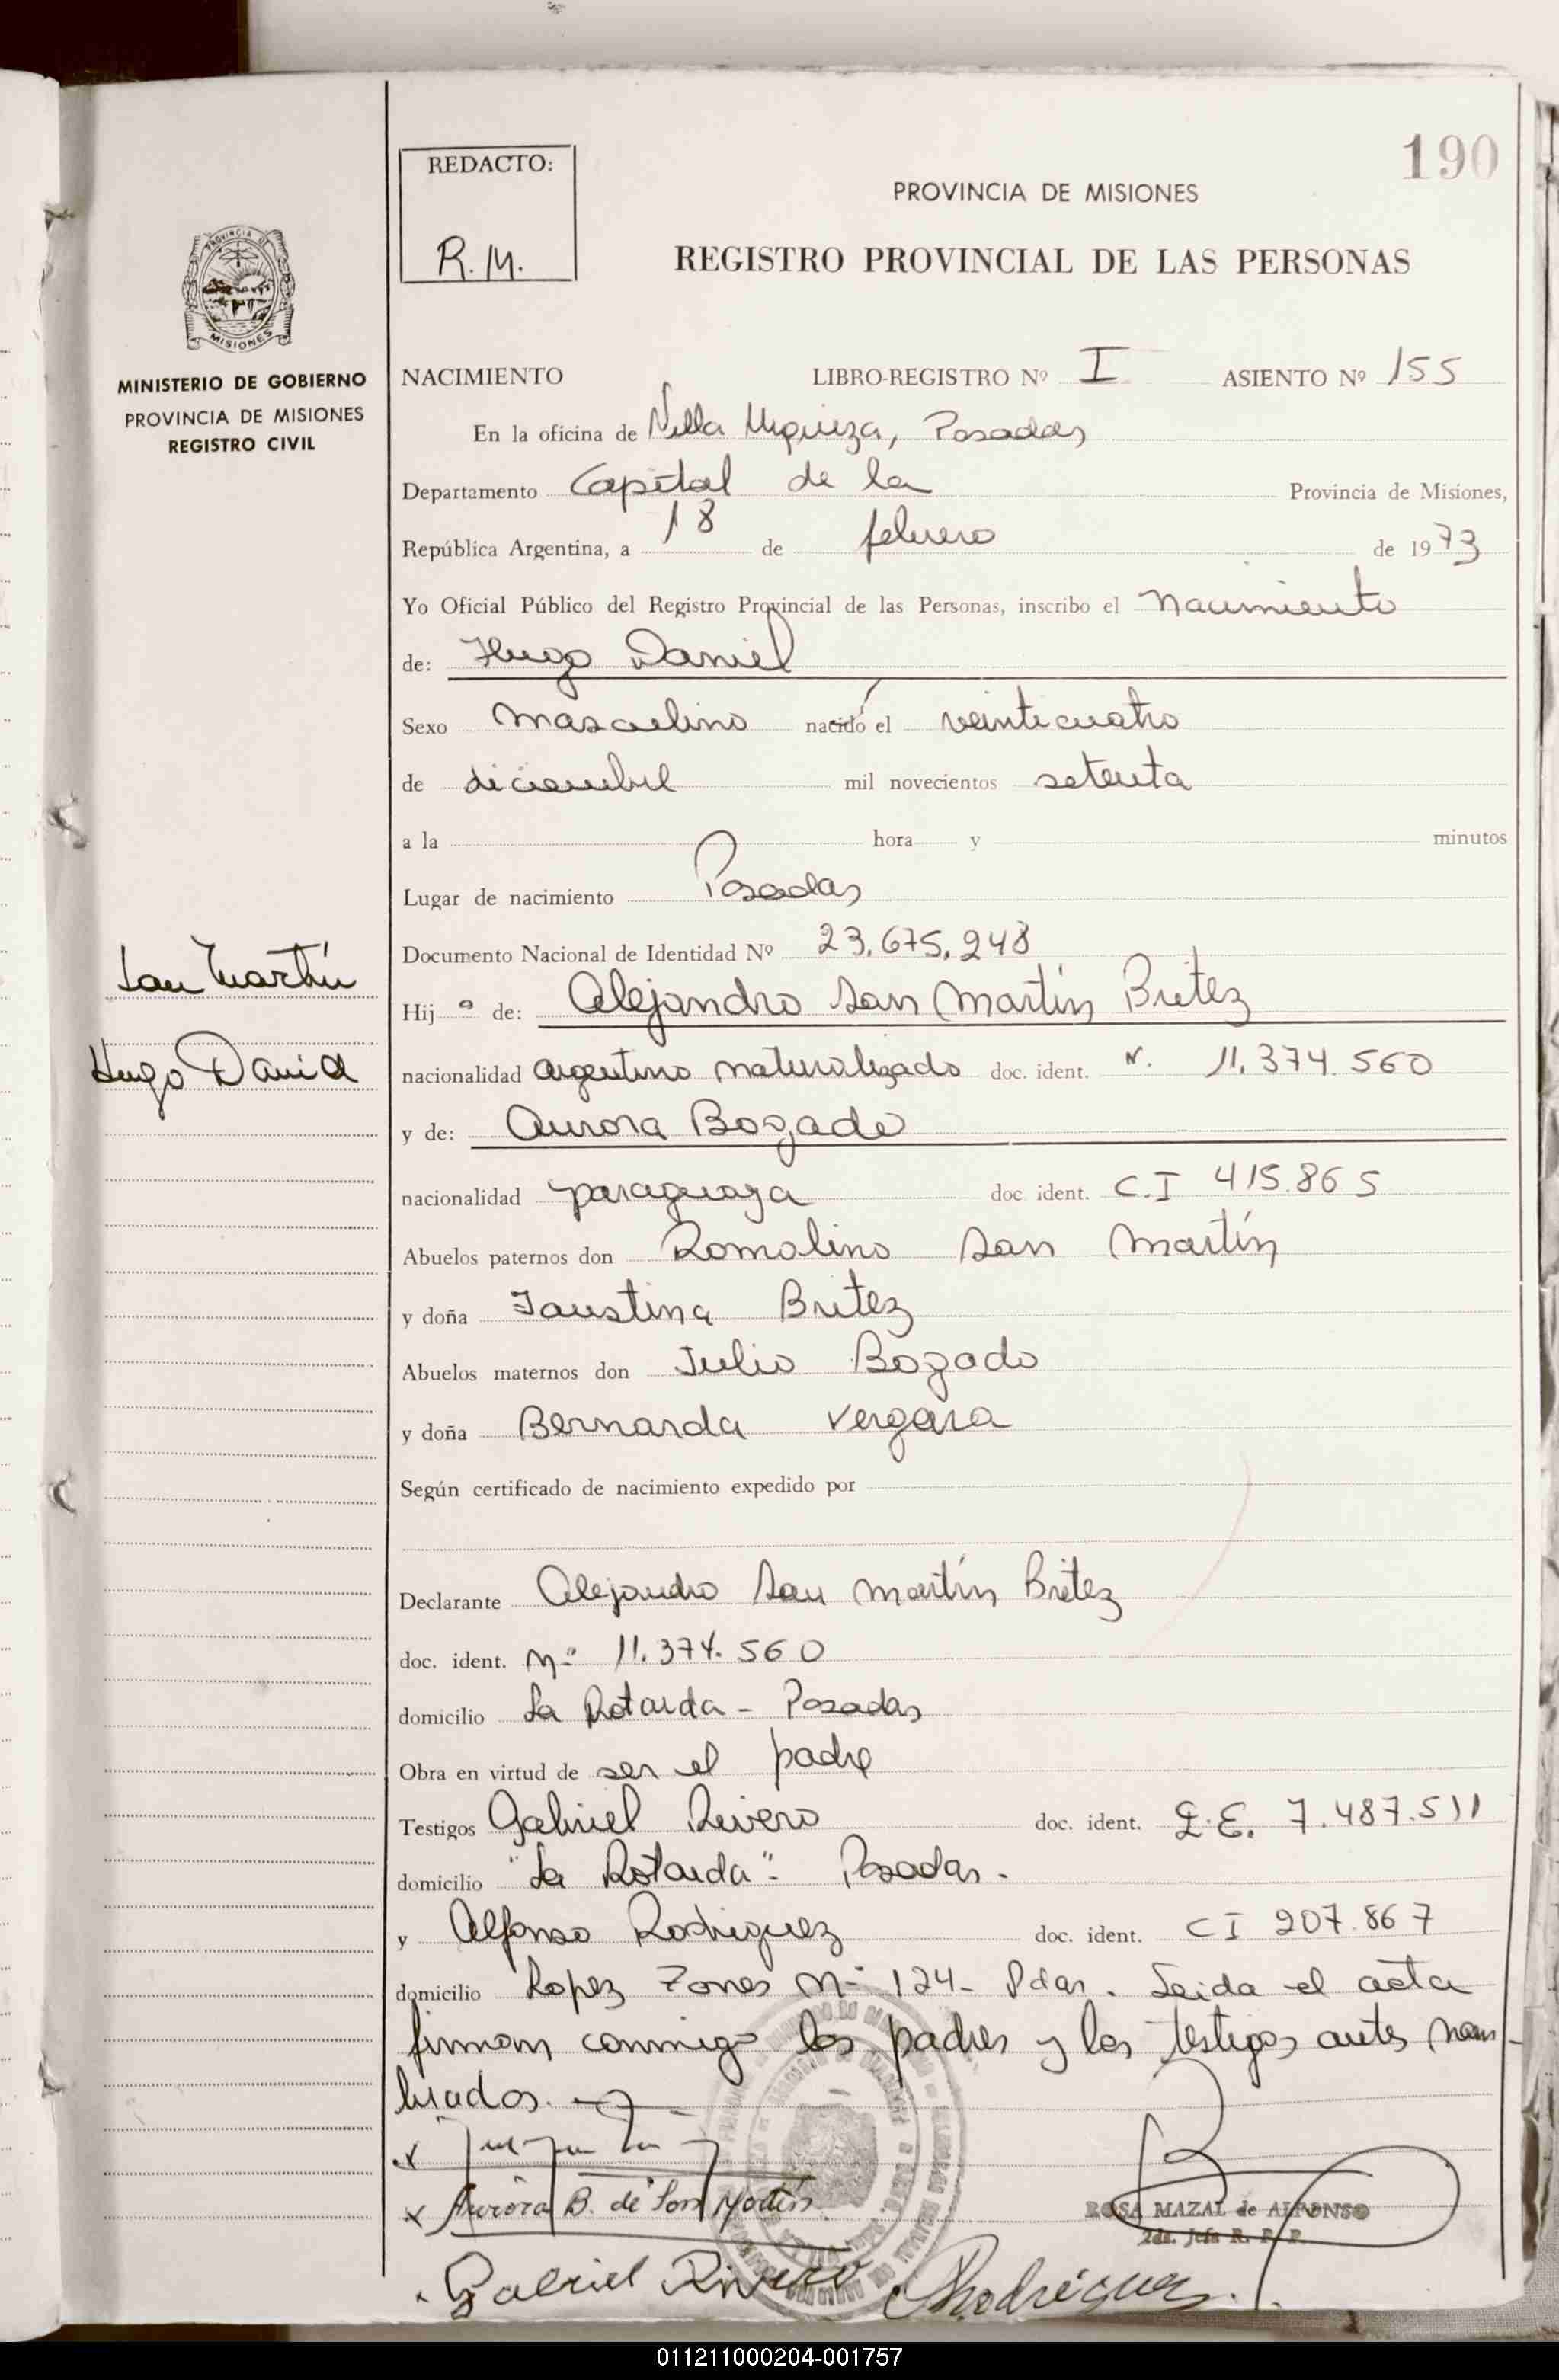 190
REDACTO:
R.M.
PROVINCIA DE MISIONES
REGISTRO PROVINCIAL DE LAS PERSONAS
PROVINCIA DE
MISIONES
MINISTERIO DE GOBIERNO
PROVINCIA DE MISIONES
REGISTRO CIVIL
NACIMIENTO LIBRO-REGISTRO Nº I ASIENTO Nº 155
En la oficina de Villa Urquiza, Posadas
Departamento Capital de la Provincia de Misiones,
República Argentina, a 18 de febrero de 1973
Yo Oficial Público del Registro Provincial de las Personas, inscribo el Nacimiento
de: Hugo Daniel
Sexo masculino nacido el veinticuatro
de diciembre mil novecientos setenta
a la hora y minutos
Lugar de nacimiento Posadas
Documento Nacional de Identidad Nº 23.675.248
San Martín
Hugo Daniel
Hij o de: Alejandro San Martín Britez
nacionalidad argentino naturalizado doc. ident. N. 11.374.560
y de: Aurora Bogado
nacionalidad paraguaya doc. ident. C.I 415.865
Abuelos paternos don Romolino San Martín
y doña Faustina Britez
Abuelos maternos don Julio Bogado
y doña Bernarda Vergara
Según certificado de nacimiento expedido por
Declarante Alejandro San Martín Britez
doc. ident. Nº 11.374.560
domicilio La Rotonda - Posadas
Obra en virtud de ser el padre
Testigos Gabriel Rivero doc. ident. L.E. 7.487.511
domicilio "La Rotonda" Posadas.
y Alfonso Rodriguez doc. ident. CI 207.867
domicilio Lopez Torres Nº 124- Pdas. Leida el acta
firman conmigo los padres y los testigos antes nom-
brados.
x
x Aurora B. de San Martín
ROSA MAZAL de ALFONSO
2da. Jefa R. P. P.
Gabriel Rivero Rodríguez
011211000204-001757